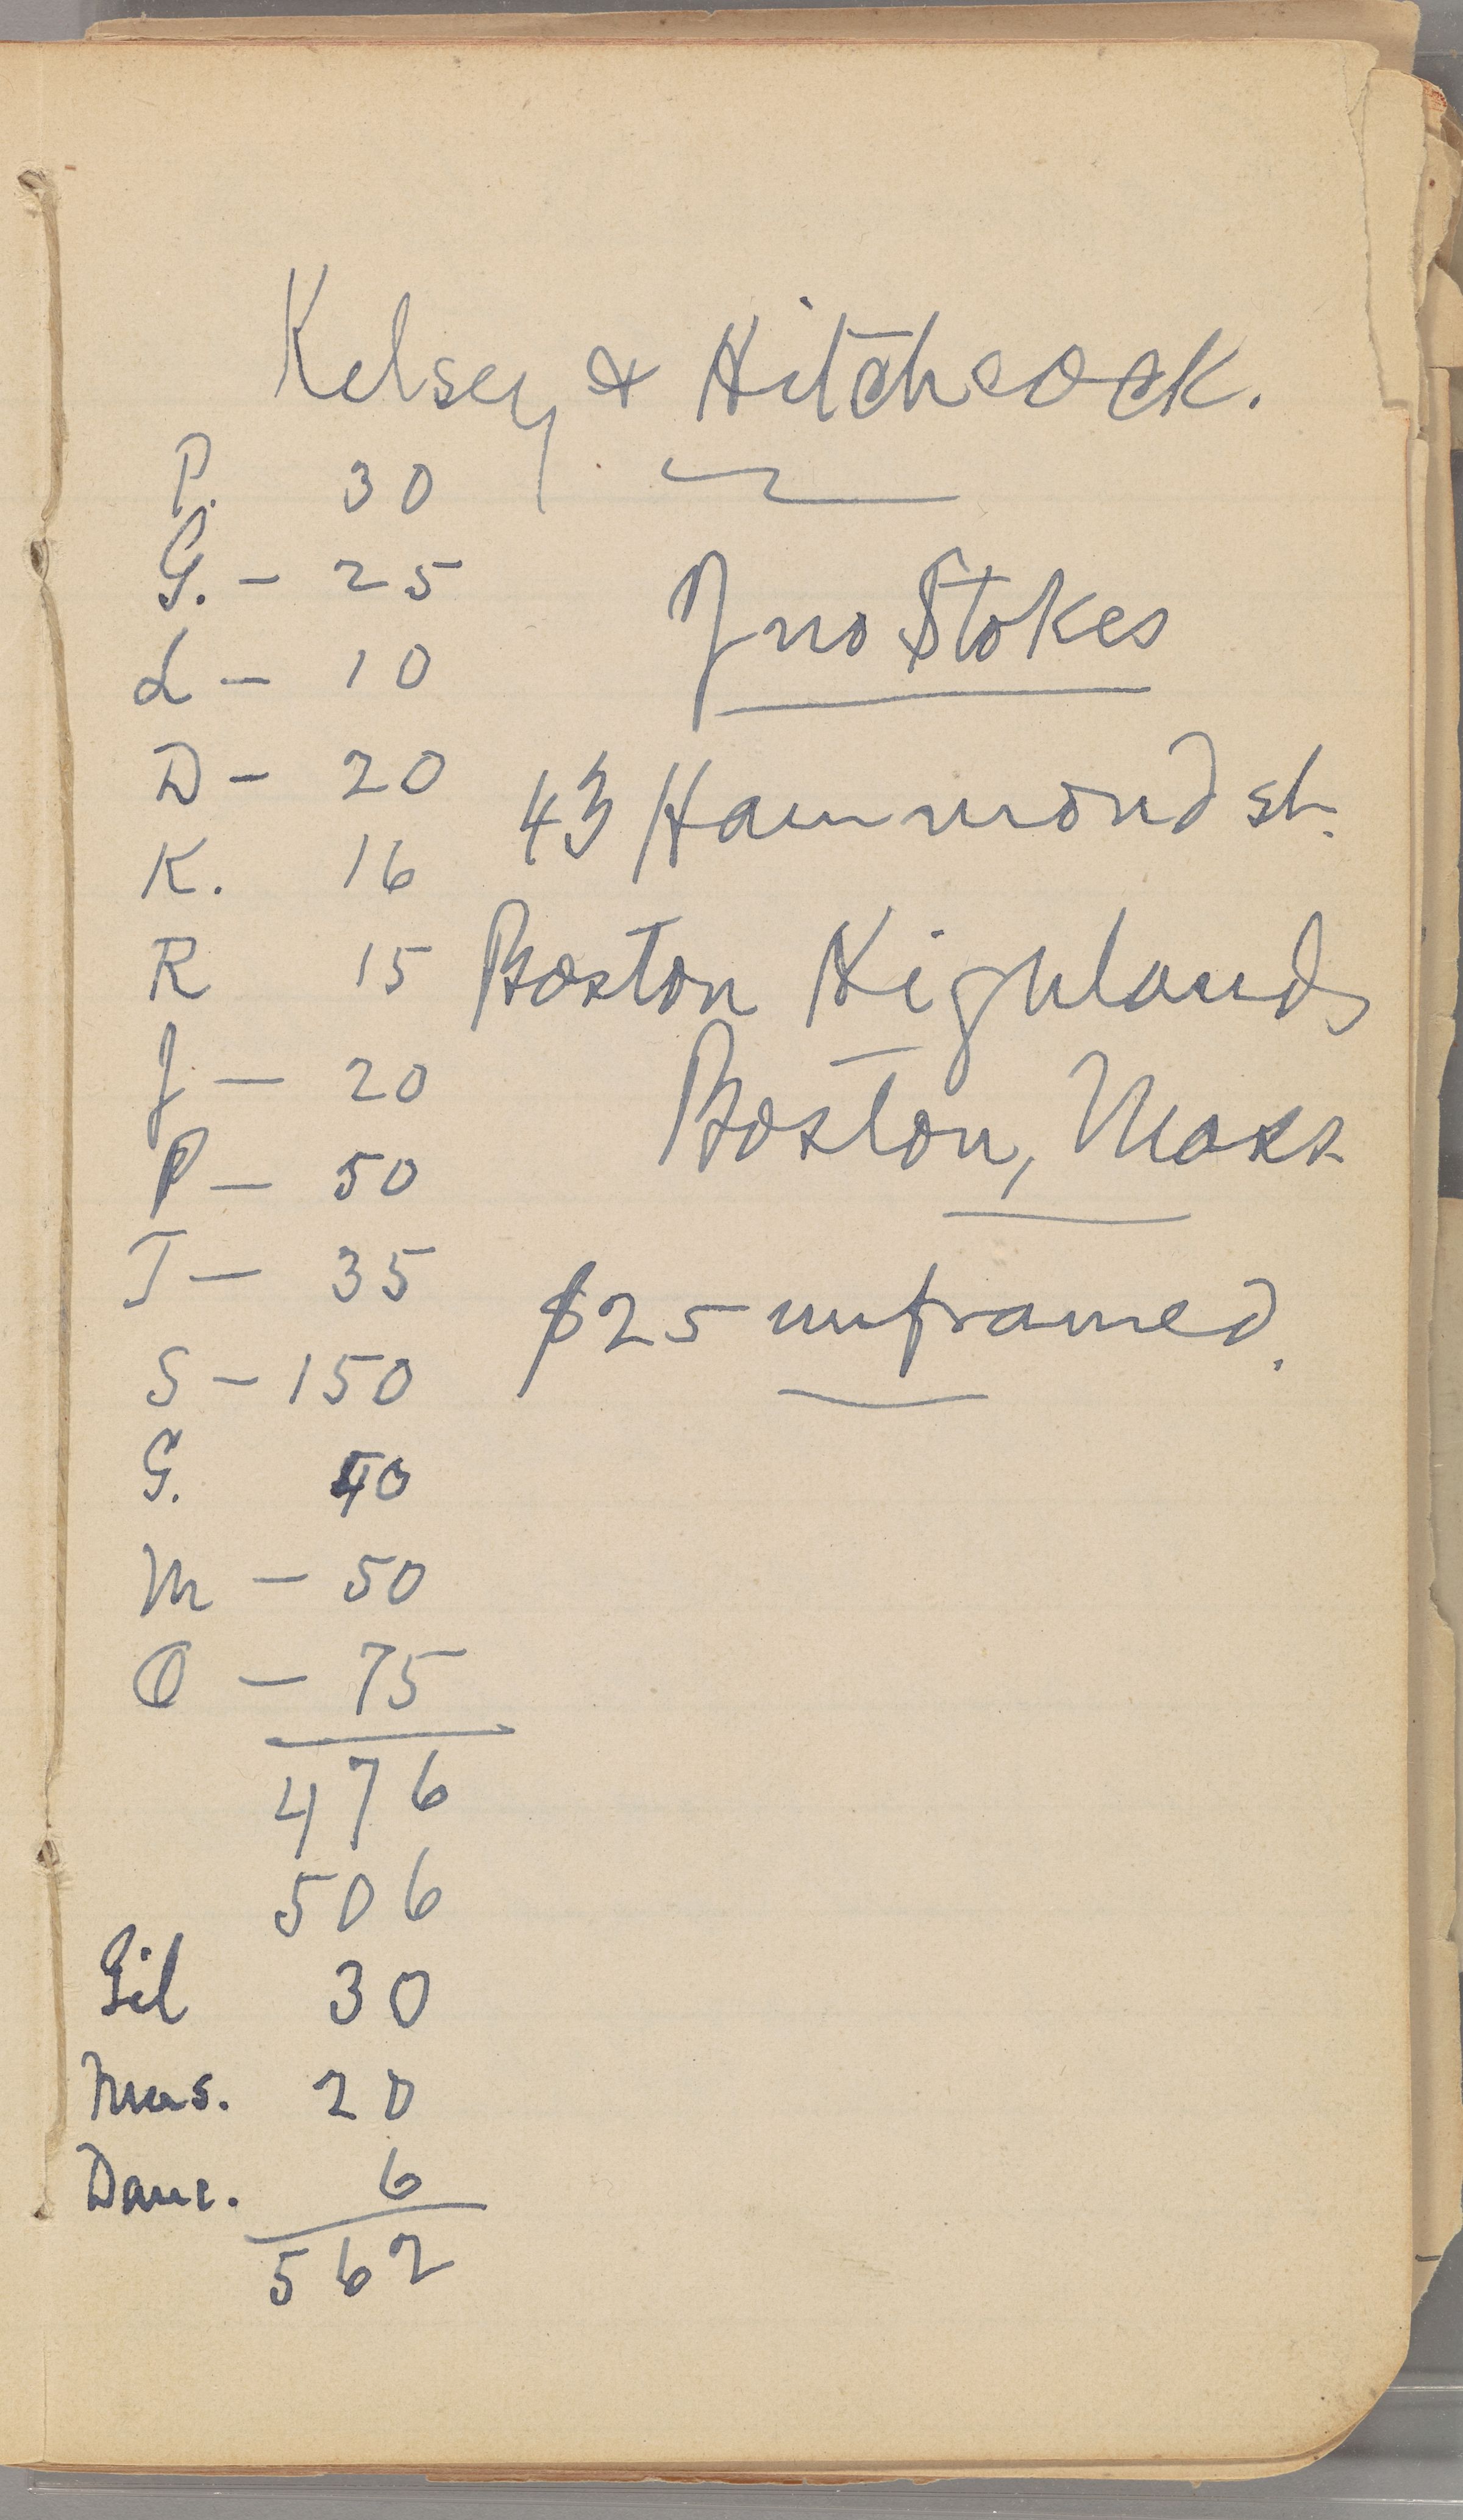 Kelsey & Hitchcock.
P. 30
G. - 25
Jno Stokes
L - 10
D - 20
43 Hammond st.
K. 16
R 15
Boston Highlands
J - 20
Boston, Mass
P - 50
T - 35
$25 unframed.
S - 150
G. 40
M - 50
O - 75
476
506
Gil 30
Mus. 20
Danc. 6
562